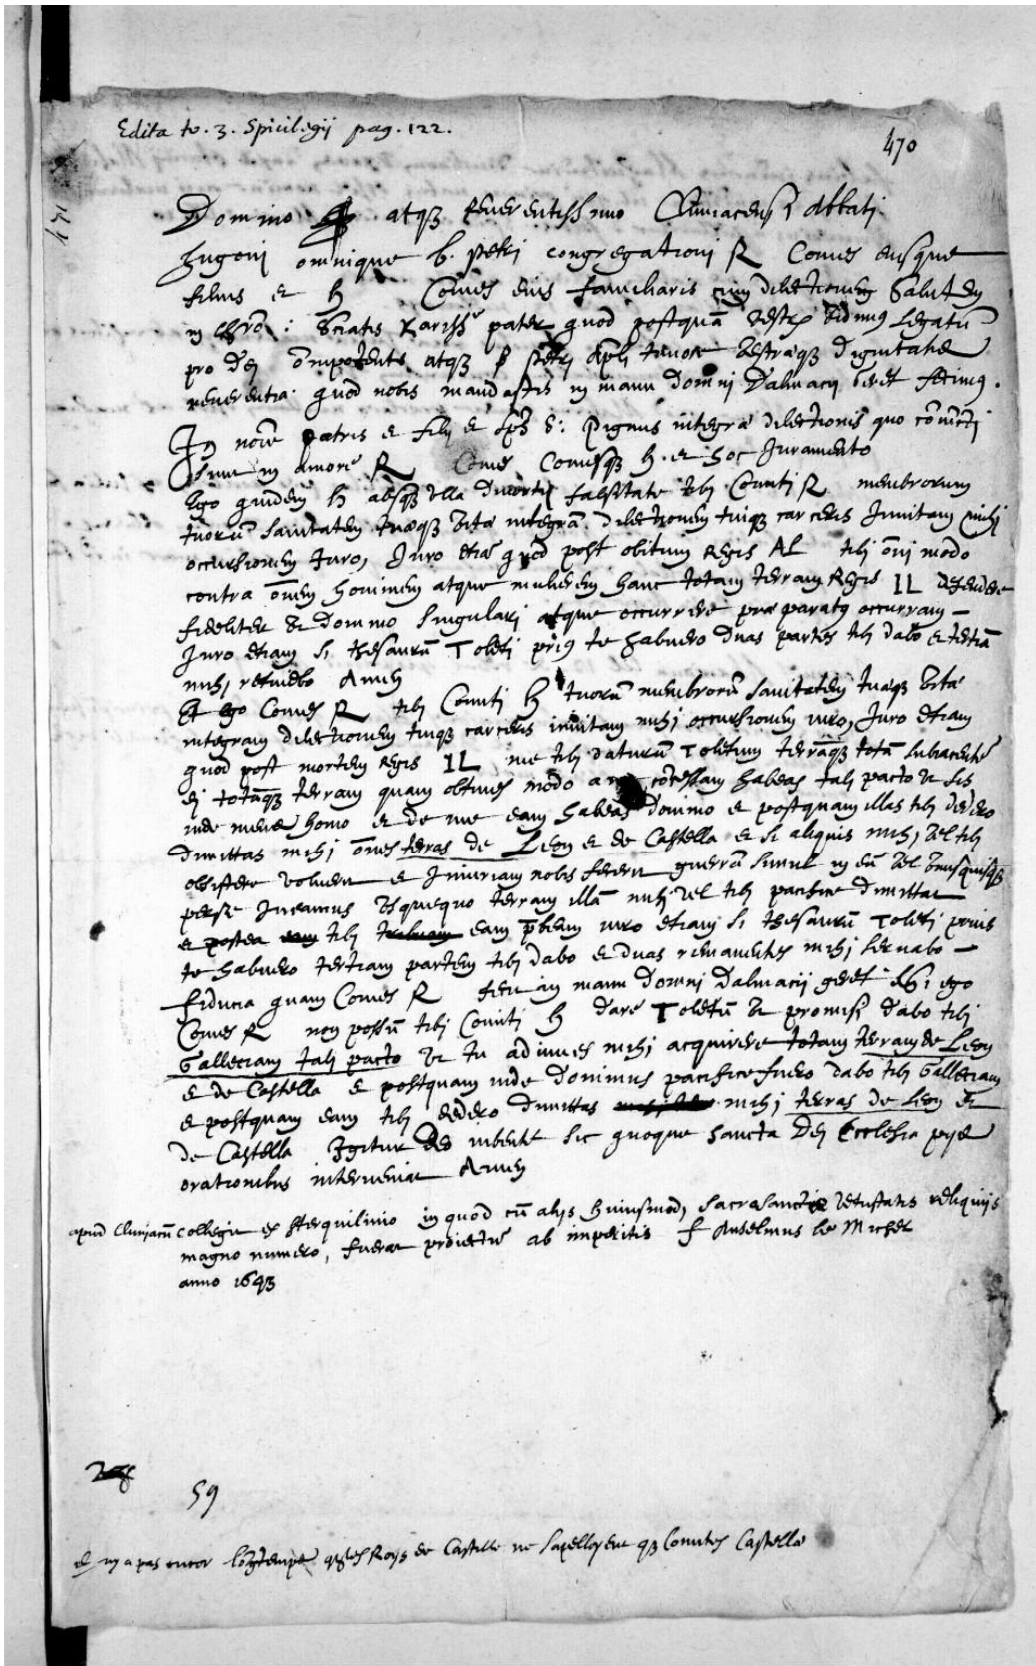 Edita to. 3. Spicilegij pag. 122.
470
471
Domino atq3 Reverentissimo Cluniacensi Abbati
Hugoni omnique b. Petri congregationi R Comes eiusque
filius et H Comes eius familiaris cum dilectionem Salutem
in chro : Sciatis Kariss pater quod postquā vestrū vidimus Legatū
pro Dei omipotentis atq3 Petri Apli timore vestræq3 dignitatis
reverentia quod nobis mandastis in manu Domni Dalmacij Geret fecimus.
In noīe patris et filij et spūs S: Pignus integræ dilectionis quo cōiuncti
sunt in Amore R Comes Comesq3 H. et hoc Juramento
Ego quidem H absq3 ulla divortij falsitate tibi Comiti R membrorum
tuorū sanitatem tuæq3 vitæ integrā dilectionem tuiq3 carceris Invitam mihi
occursionem Juro, Juro etiā quod post obitum Regis AL tibi oīn modo
contra oēm hominem atque mulierem hanc totam terram Regis IL defendere
fideliter ut domino singulari atque occurrere præparatus occurram
Juro etiam si thesaurū Toleti prius te habuero duas partes tibi dabo et tertiā
mihi retinebo Amen
Et Ego Comes R tibi Comiti H tuorū membrorū sanitatem tuæq3 vitæ
integram dilectionem tuiq3 carceris invitam mihi occursionem iuro, Juro etiam
quod post mortem Regis IL me tibi daturū Toletum terrāq3 totā subiacentē
ei totāq3 terram quam obtines modo a me cōcessam habeas tali pacto ut sis
inde meus homo et de me eam habeas domino et postquam illas tibi dedero
dimittas mihi oēs terras de Leon et de Castella et si aliquis mihi vel tibi
obsistere voluerit et Iniuriam nobis fecerit guerrā simul in eū vel unusquisq3
per se Ineamus usquequo terram illā mihi vel tibi pacifice dimittat
et postea tibi eam p̄beam iuro etiam si thesaurū Toleti prius
te habuero tertiam partem tibi dabo et duas remanentes mihi servabo
fiducia quam Comes R fecit in manu Domni Dalmacij geret Si ego
Comes R non possū tibi Comiti H dare Toletū ut promisi dabo tibi
Galleciam tali pacto ut tu adiuves mihi acquirere totam terram de Leon
et de Castella et postquam inde dominus pacifice fuero dabo tibi Galleciam
et postquam eam tibi dedero dimittas mihi terras de Leon et
de Castella Igitur Deo iubente sic quoque sancta Dei Ecclesia pijs
orationibus interveniat Amen
apud Cluniacū collegit ex sterquilinio in quod cū alijs huiusmodi sacrasanctæ vetustatis reliquijs
magno numero, fuerat proiectū ab imperitis f Anselmus le Michel
anno 1643
59
il ny a pas encor longtemps q les Roys de Castille ne sapelloyent q3 Comites Castellæ